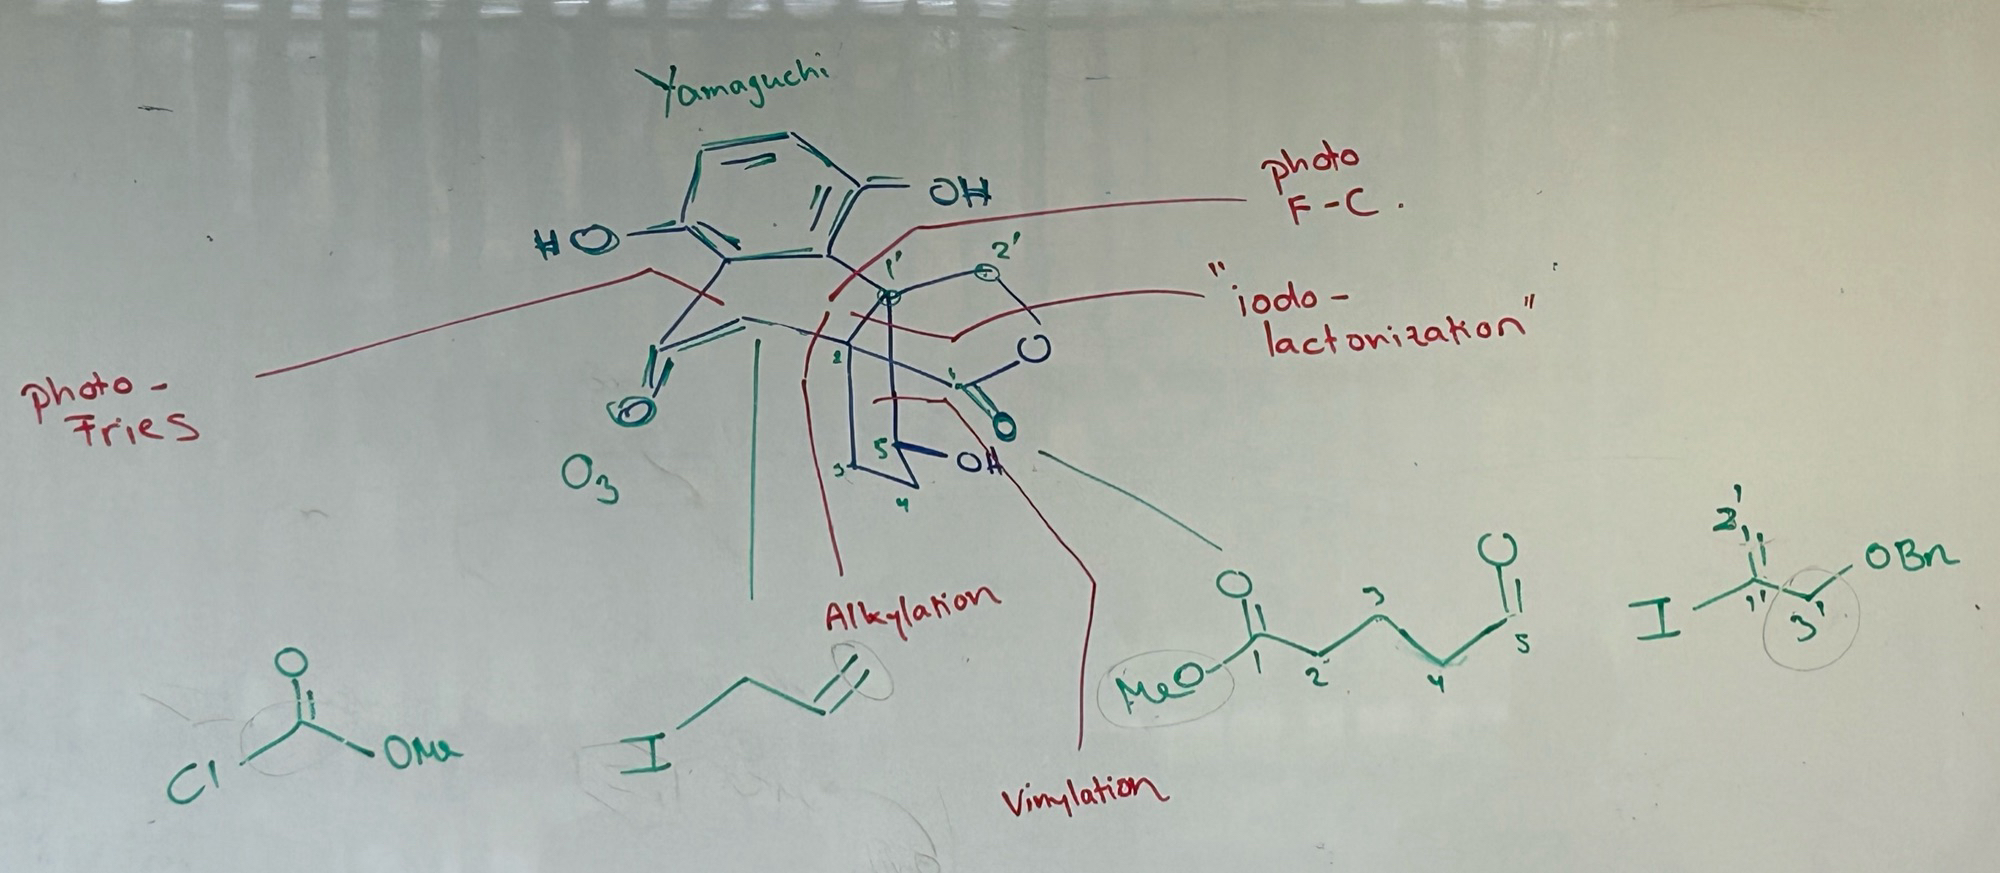 Yamaguchi
OH
HO
photo
F-C.
1'
2'
"iodo-
lactonization"
O
2
1
O
photo-
Fries
O
O3
5
OH
3
4
Alkylation
Vinylation
O
Cl
OMe
I
O
MeO
1
2
3
4
5
O
2'
I
1'
3'
OBn